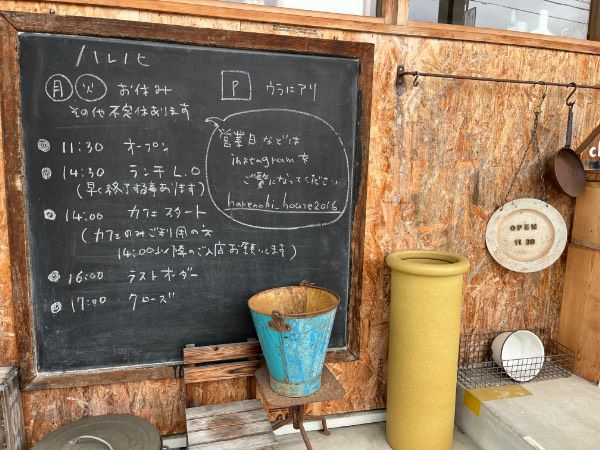 ハレノヒ
月 火 お休み
その他 不定休あります
P ウラにアリ
営業日などは
instagramを
ご覧になってください
harenohi_house2016
11:30 オープン
14:30 ランチ L.O
(早く終了する事あります)
14:00 カフェ スタート
(カフェのみご利用の方
14:00以降のご入店お願いします)
16:00 ラストオーダー
17:00 クローズ
OPEN
11:30